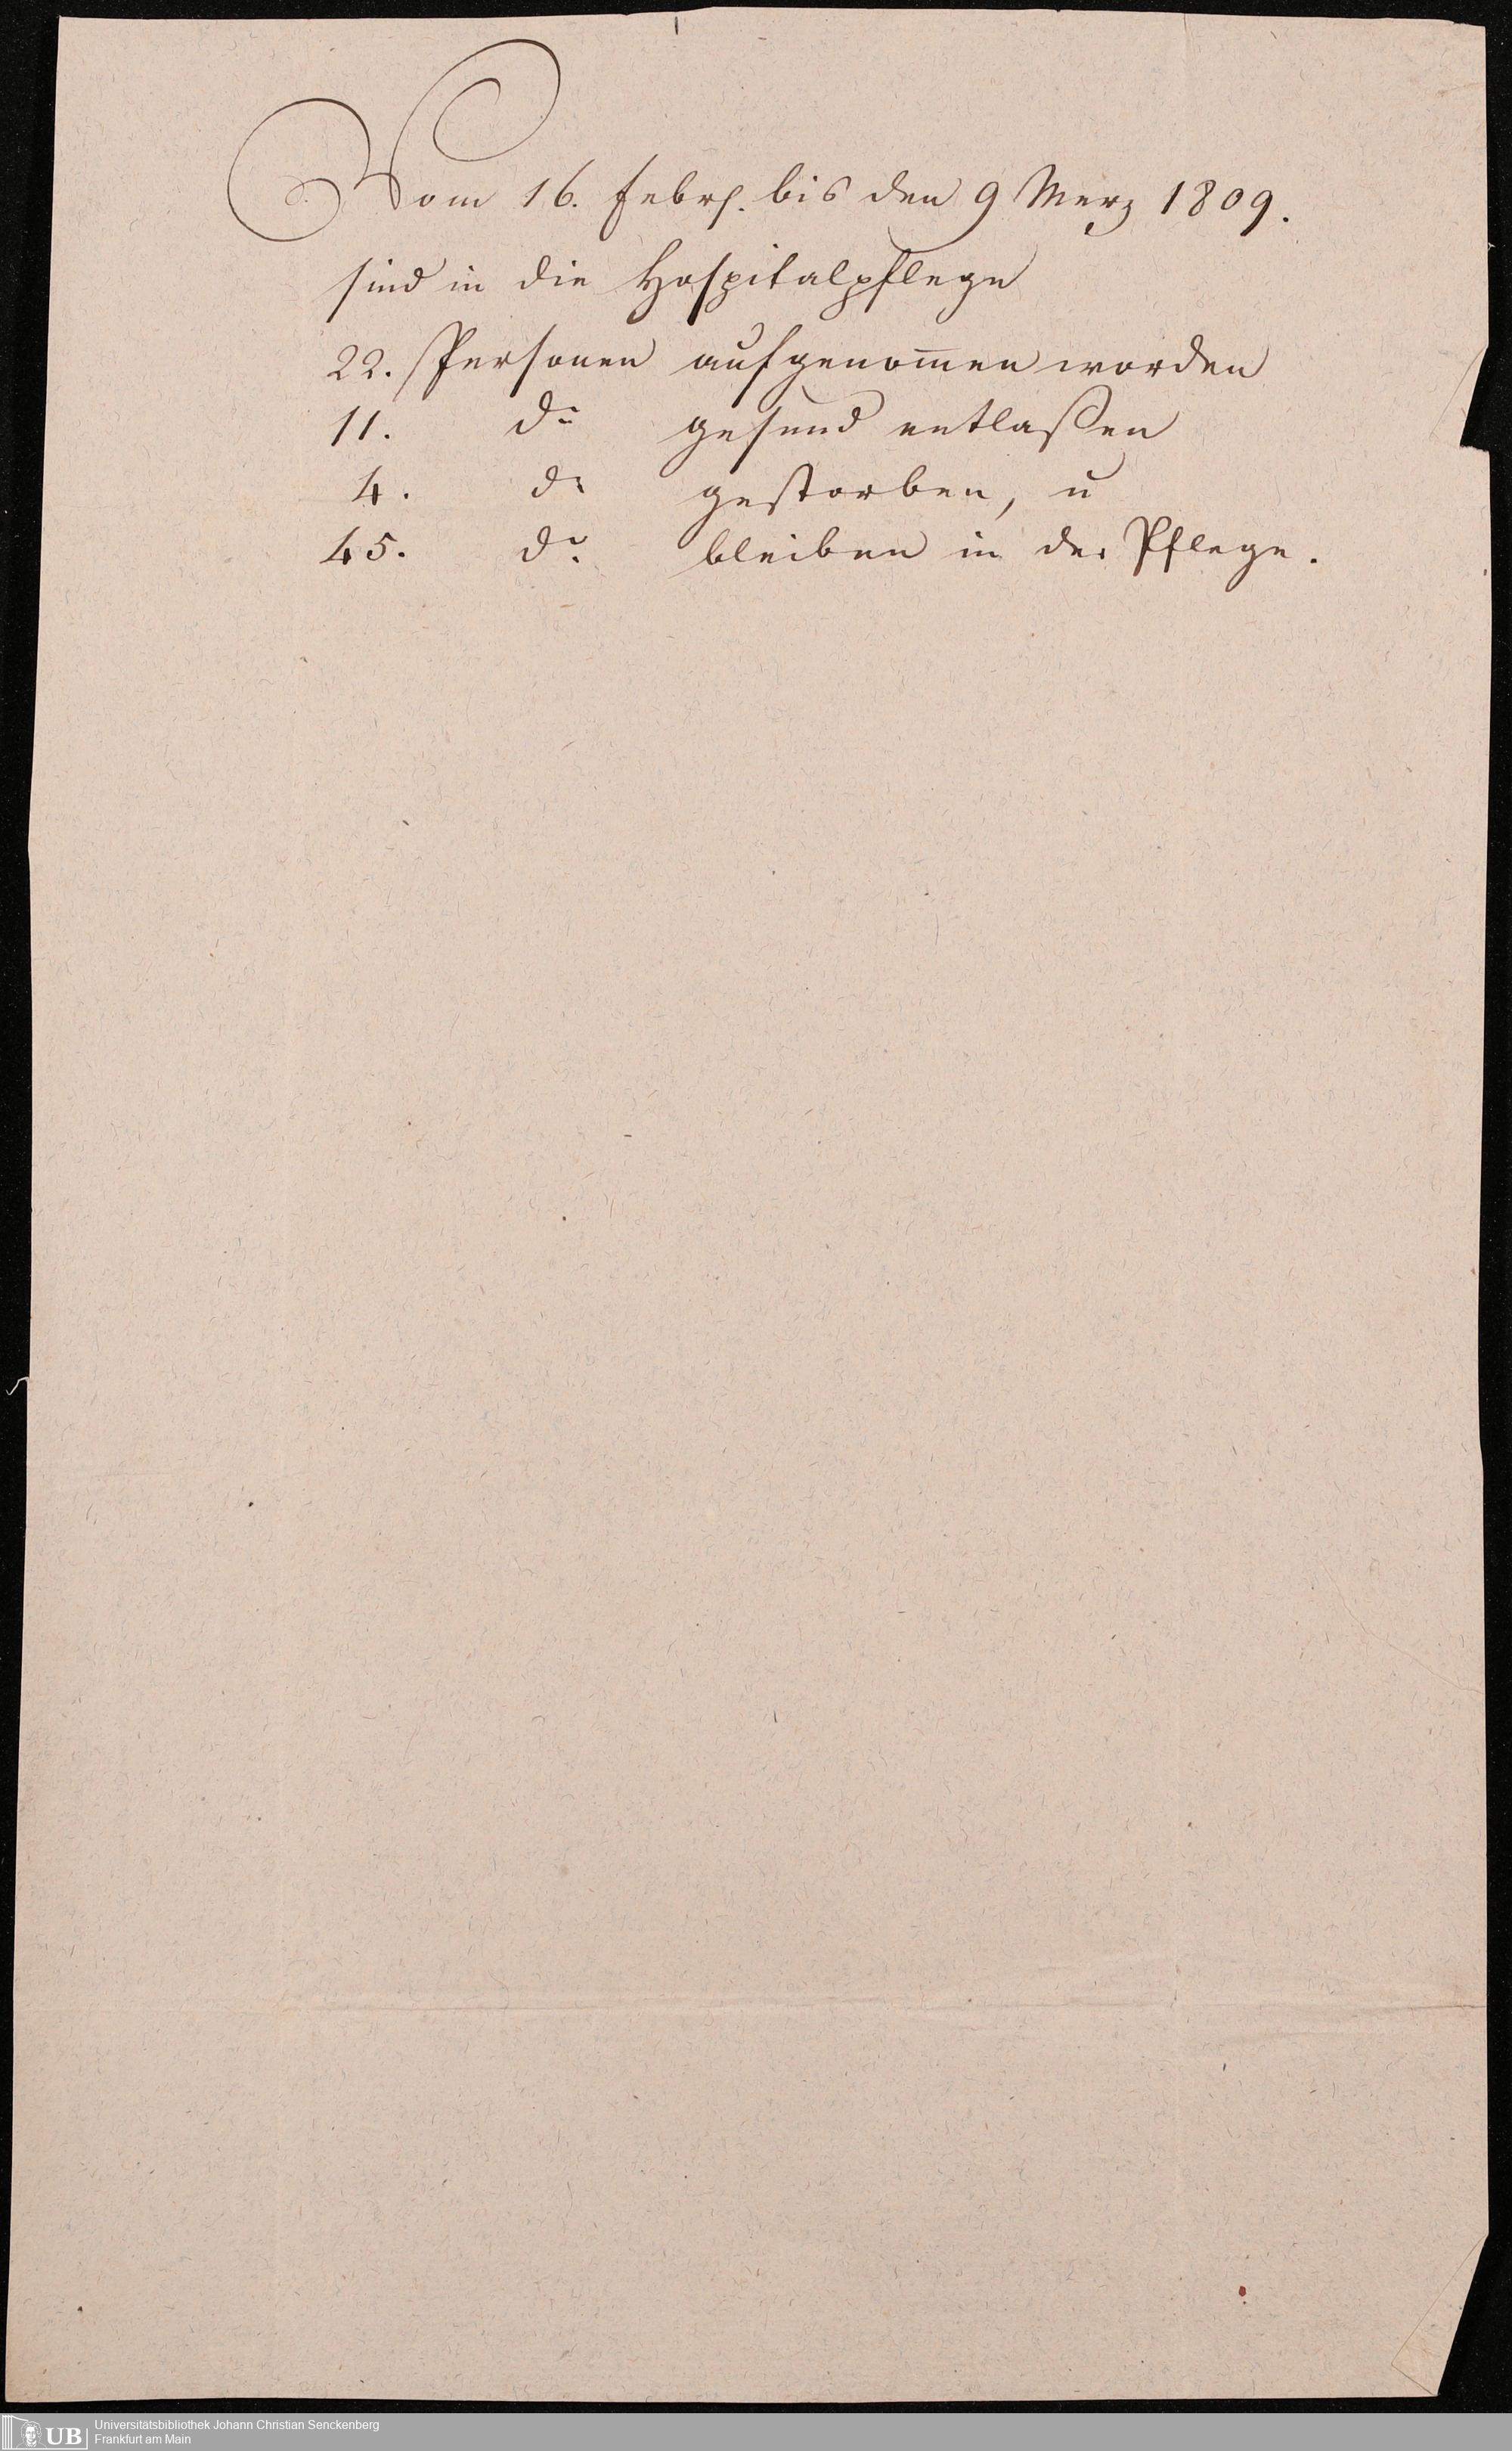 Vom 16. Febr. bis den 9 Merz 1809.
sind in die Hospitalpflege
22. Personen aufgenom̅en worden
11. do gesund entlaßen
4. do gestorben, u
45. do bleiben in der Pflege.
UB
Universitätsbibliothek Johann Christian Senckenberg
Frankfurt am Main